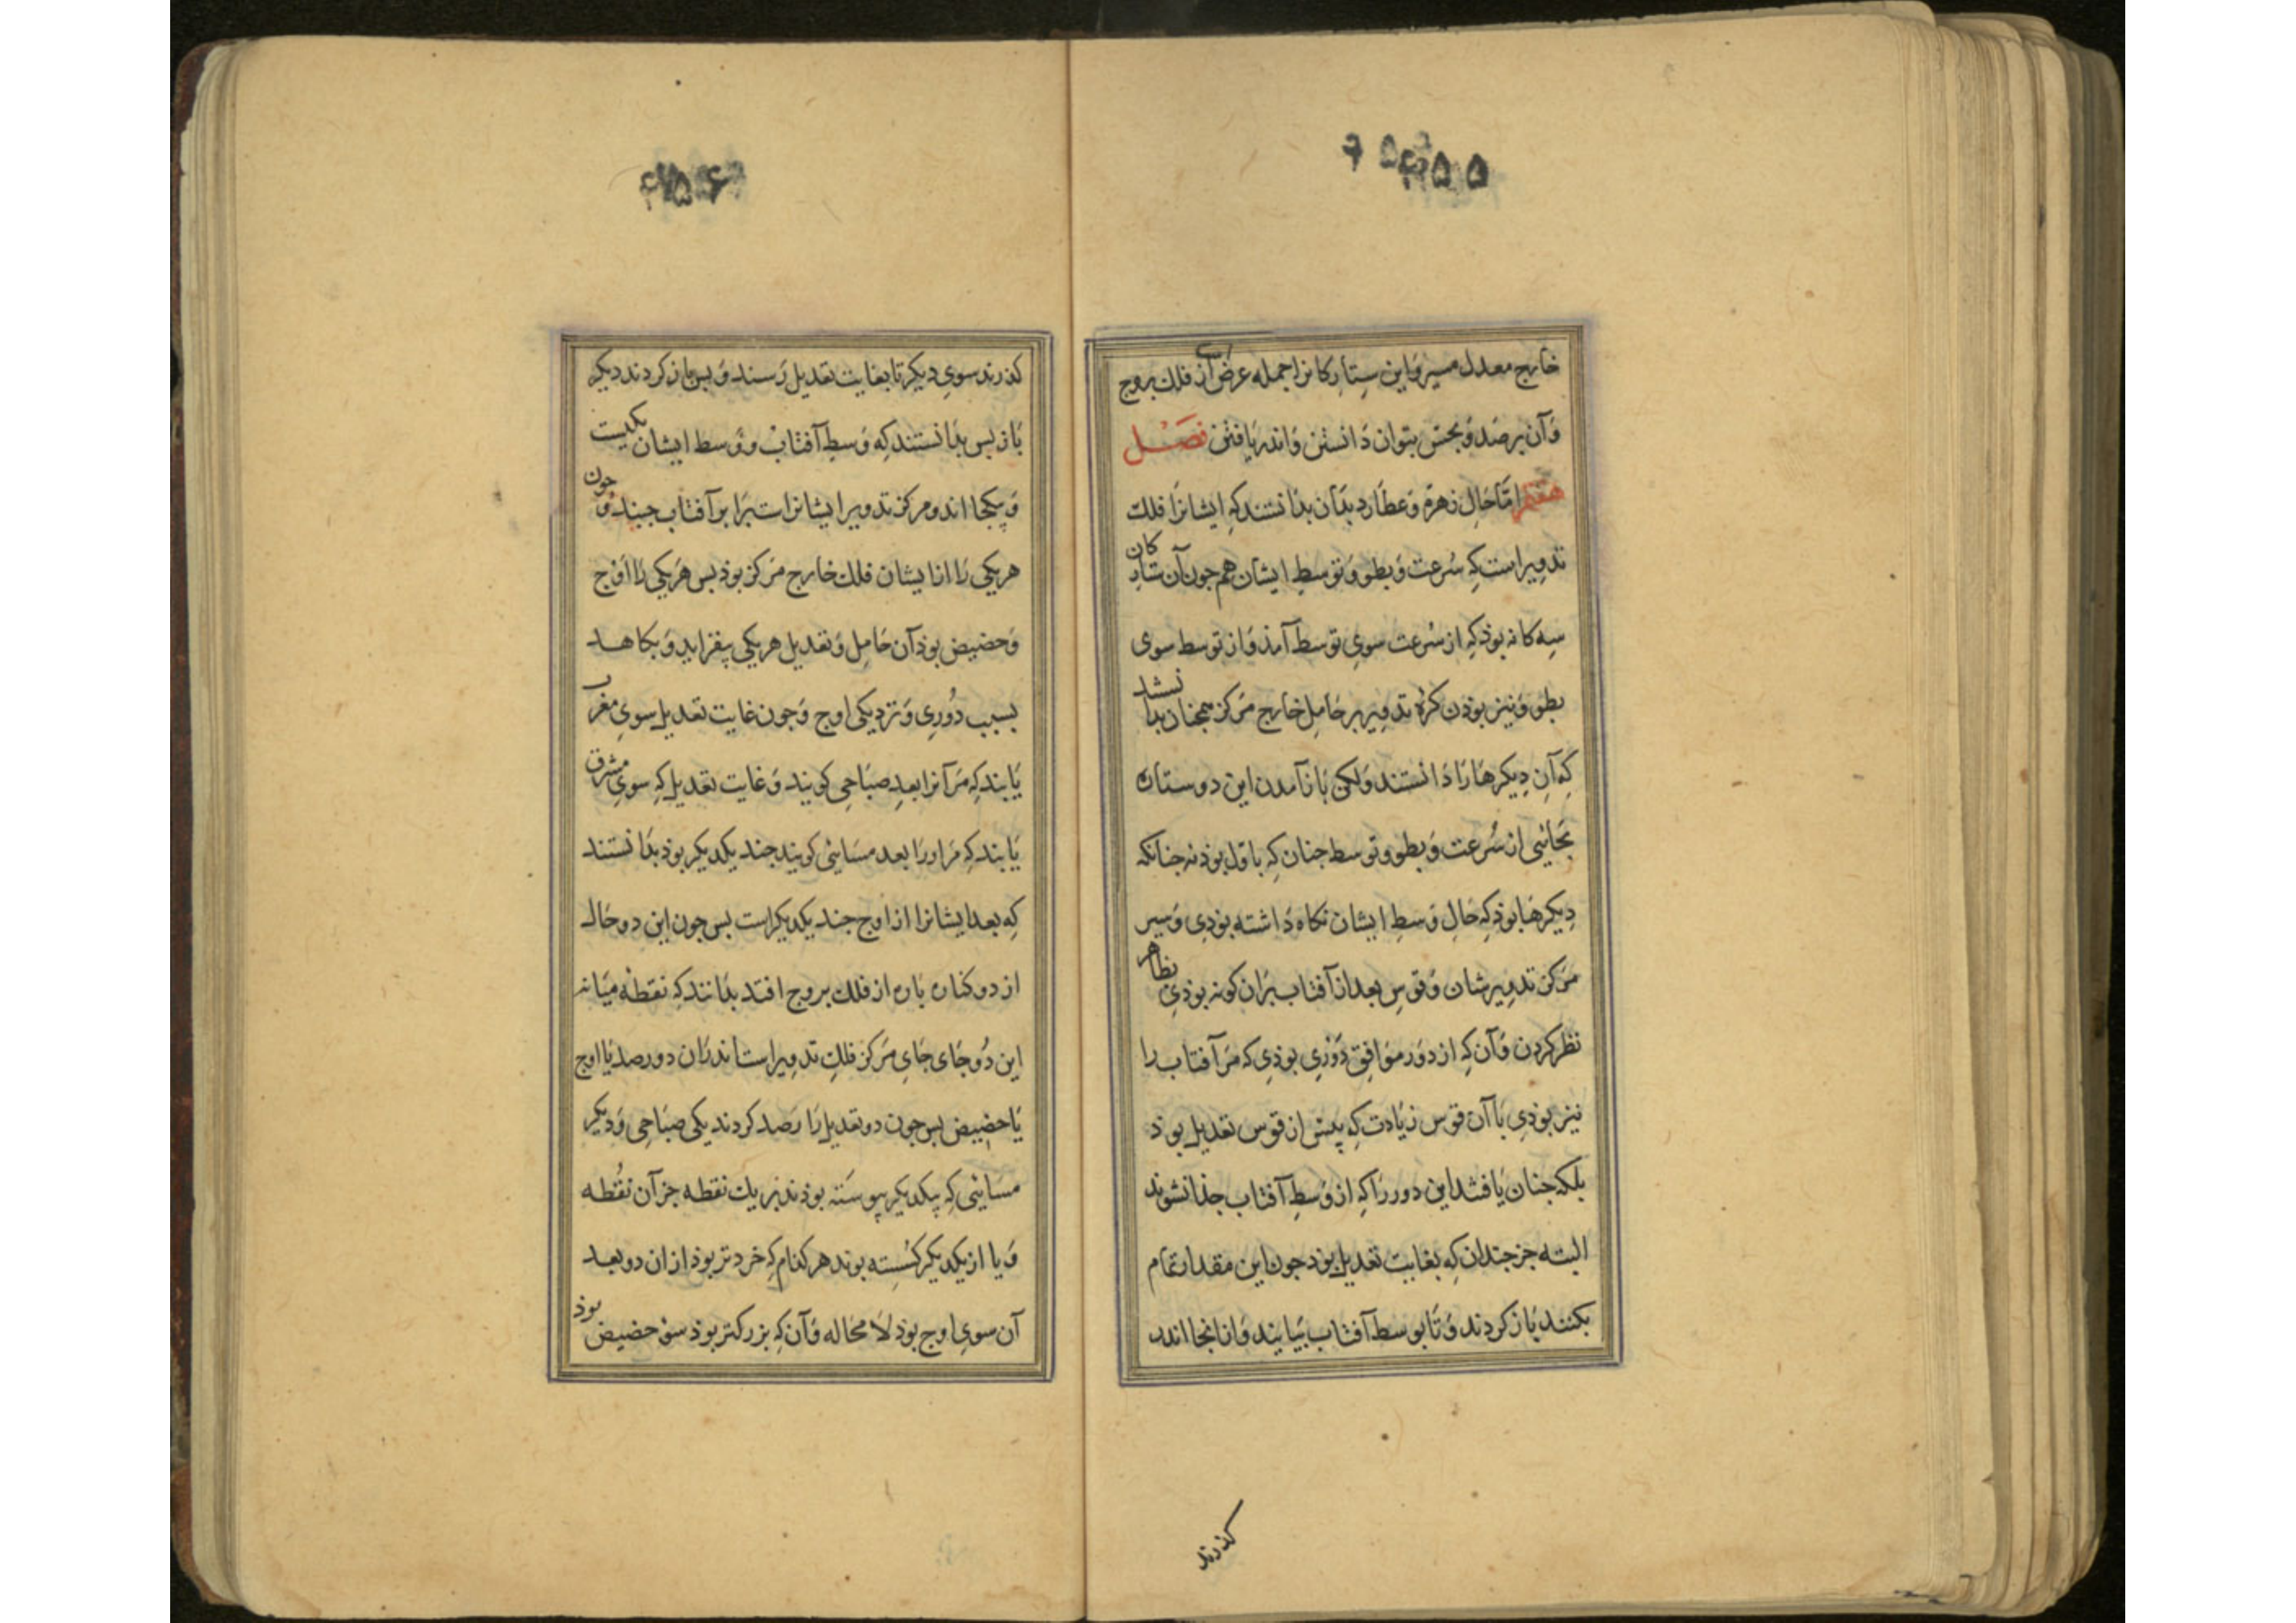 خارج معدل مسیر و این ستارکانرا جمله عرض است از فلك بروج
وَآن برصَد وَبجستن بتوان دَانستن وَاندر یَافتن فصَــل
هفتم امّا حَالِ زهرَه وَعطَارد بدَان بدَانستند کِه ایشانرَا فلك
تدویر است کِه سُرعت وَبطو وَتوسطِ ایشان هم جون آن ستارکان
سِه کانه بوذ کِه از سُرعت سویِ توسط آمذ وَاز توسط سوی
بطو وَنیز بوذن کرَه تدویر بر حَامِلِ خَارج مَرکز همجنان بدانستند
کِه آنِ دِیکرهَا رَا دَانستند وَلکن بَاز آمدن این دو ستاره
بجَائیی از سُرعت وَبطو وتوسط جنان کِه باوّل بوذ نه جنانکه
دِیکرهَا بوذ کِه حَالِ وَسطِ ایشان نکاه دَاشته بوذی وَسیر
مَرکز تدویرشان وَقوسِ بعد از آفتاب برَان کونه بوذی بظاهر
نظر کردن وَآن کِه از دَور موَافِق دَوری بوذی که مَر آفتاب را
نیز بوذی بَا آن قوس زیَادت کِه پیش از قوس تعدیل بوذ
بلکه جنان یَافتند این دو رَا کِه از وَسطِ آفتاب جذا نشوند
البته جز جندان کِه بغایت تعدیل بوذ جون این مقدار تمام
بکنند بَاز کردند وَتَا بوسط آفتاب بیَایند وَاز انجا اندر
کذرند
کذرند سویِ دیکر تا بغایت تعدیل رَسند وَبس باز کردند دیکر
بَاز بس بدَانستند کِه وَسطِ آفتاب ووَسط ایشان یکیست
وَبیکجا اند ومرکز تدویر ایشانراست برَابر آفتاب جنبد وَجون
هریکی رَا از ایشان فلك خارج مَرکز بوذ بس هَریکی رَا اَوْج
وَحضیض بوذ آن حَامِل وَتعدیل هریکی بیفزاید وَبکاهــد
بسبب دُورِی وَنزدیکی اوج وَجون غایت تعدیل سویِ مغرب
یَابند کِه مَر آنرا بعدِ صبَاحی کویند وَغایت تعدیل کِه سویِ مشرق
یَابند کِه مَر اورَا بعد مسَائی کویند جند یکدیکر بوذ بدَانستند
کِه بعد ایشانرا از اوج جند یکدیکر است بس جون این دو حَال
از دو کناره بَاره از فلك بروج افتد بدَانند کِه نقطه میَانه
این دُو جَای جَایِ مَرکز فلكِ تدویر است اندرَان دو رصد یَا اوج
یَا حضیض بس جون دو تعدیل رَا رَصد کردند یکی صبَاحی وَدیکر
مسَائی کِه بیکدیکر پیوسَته بوذند بَر یك نقطه جز آن نقُطه
وَیا از یکدیکر کسُسته بوند هر کذام کِه خردتر بوذ ازان دو بعد
آن سویِ اوج بوذ لَا محَاله وَآن کِه بزرکتر بوذ سوی حضیض بوذ